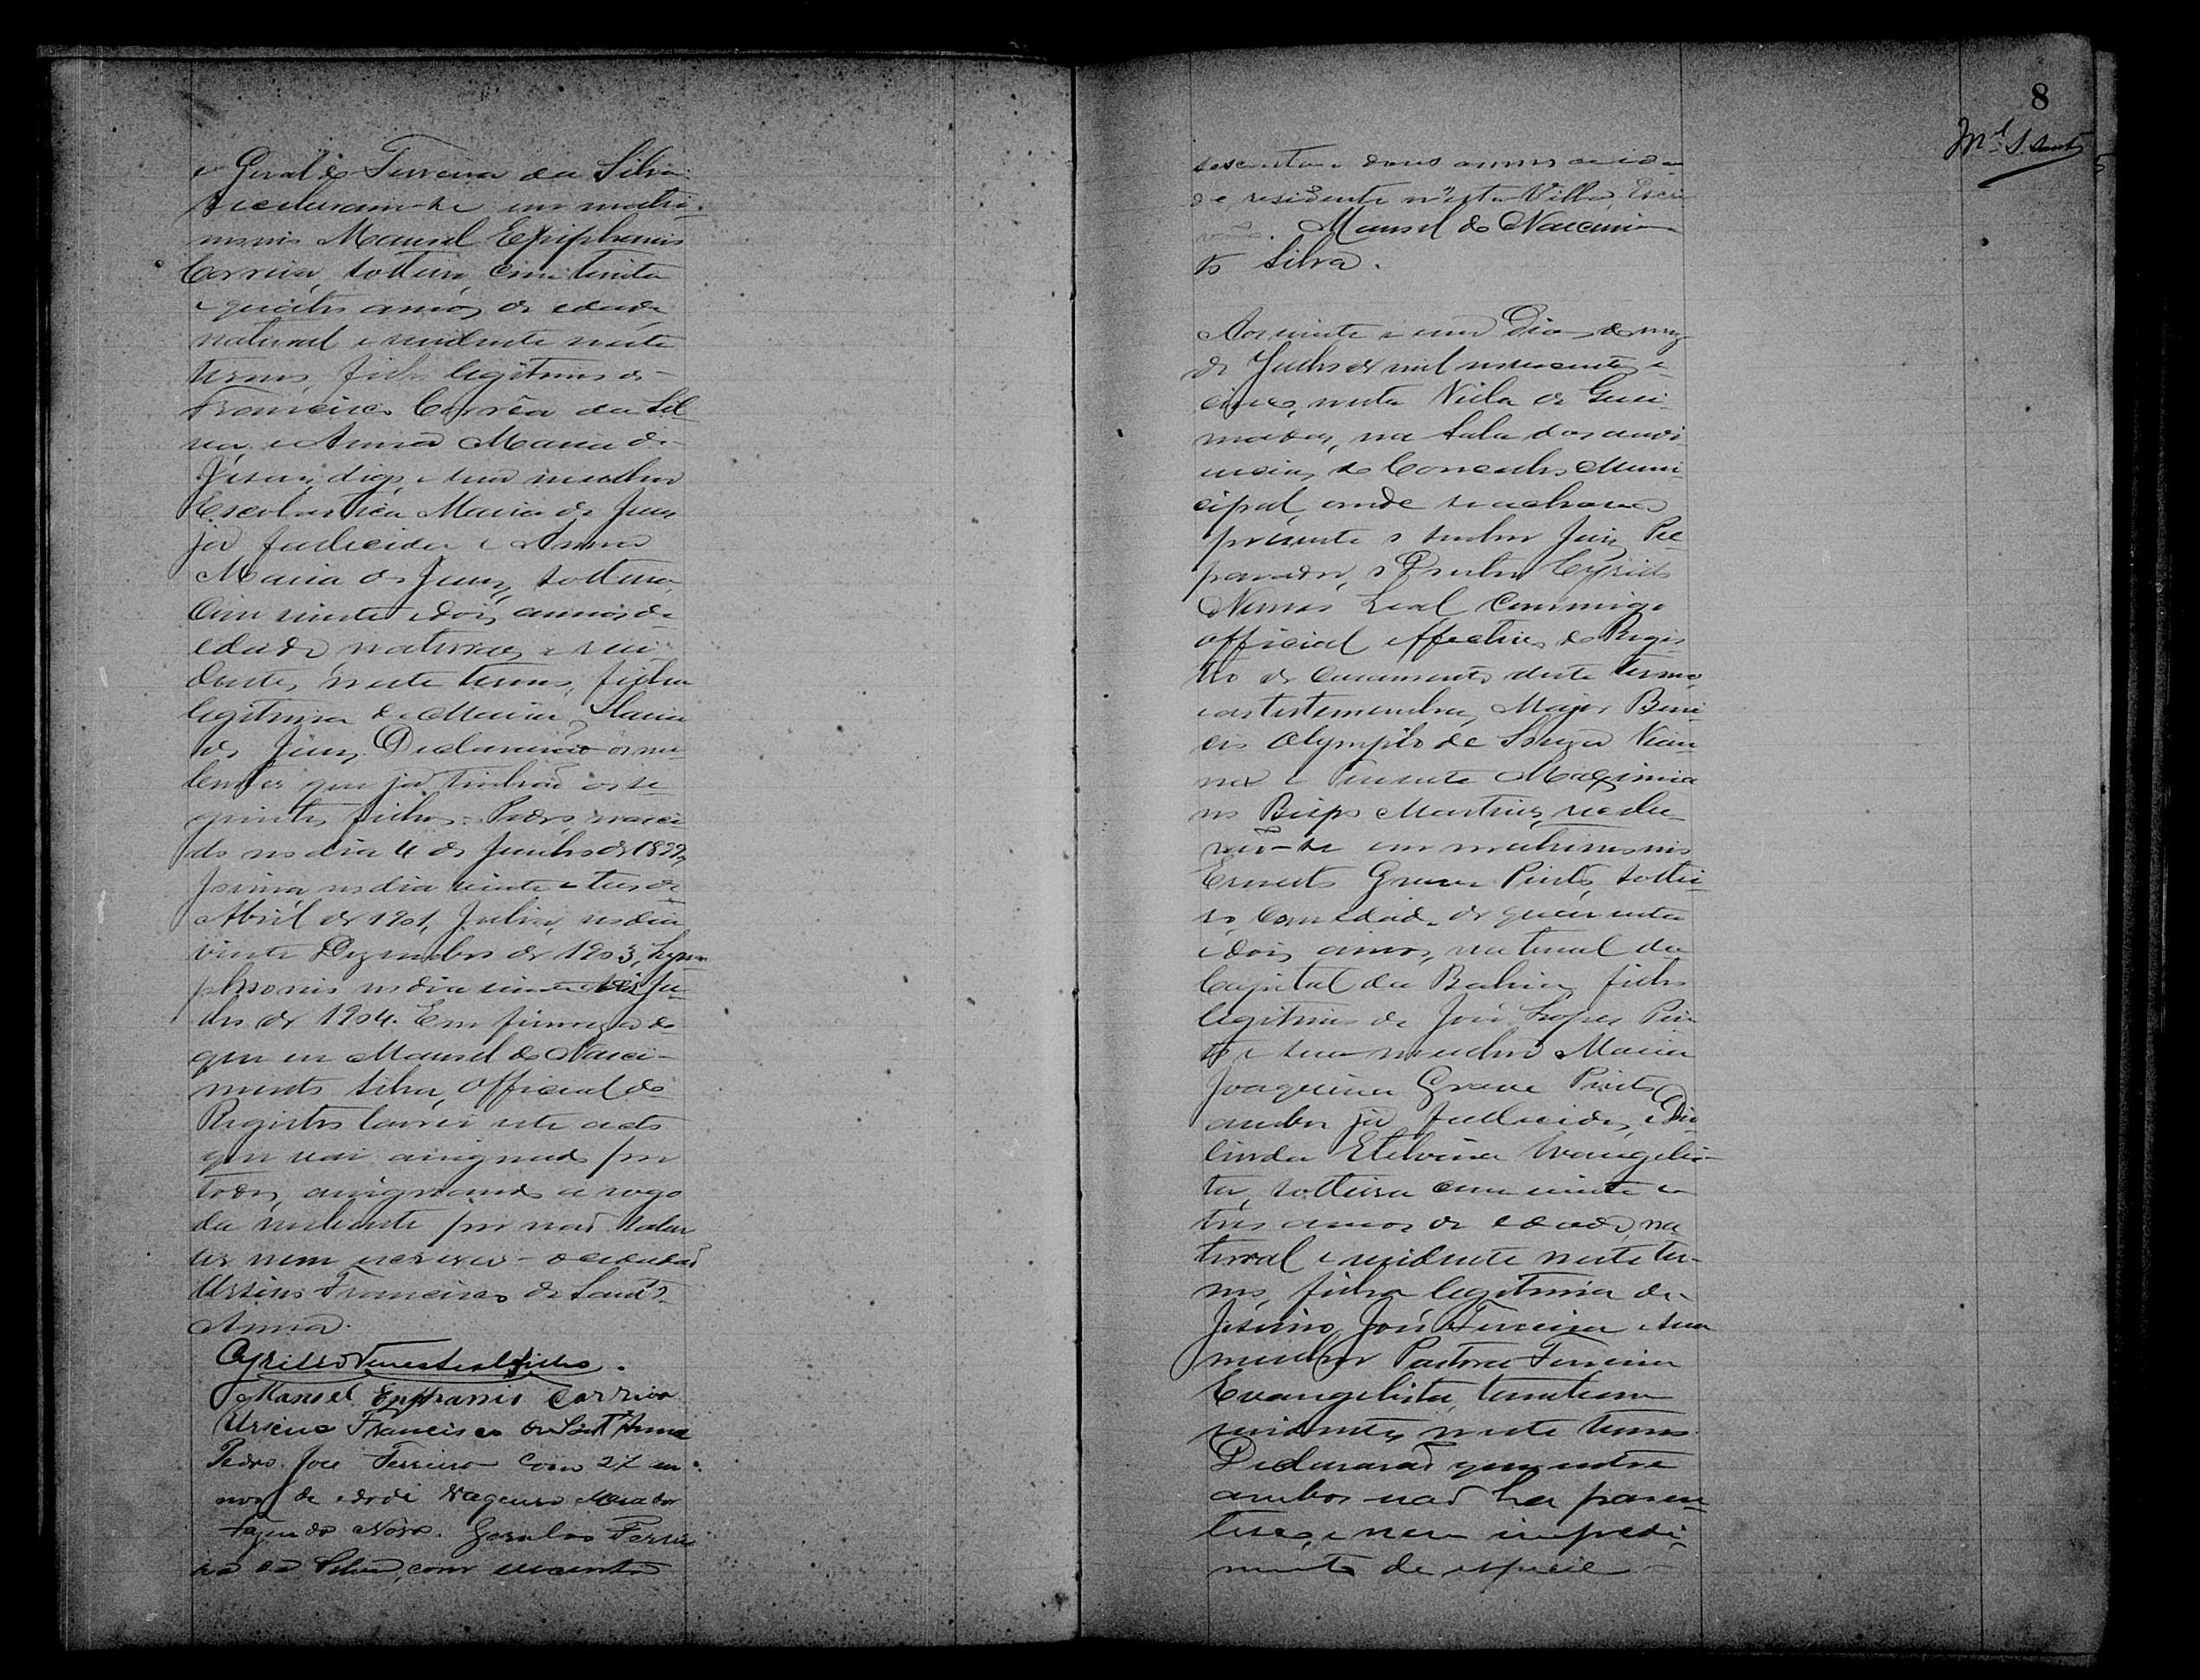 e Geraldo Ferreira da Silva
Receberam-se em matri-
monio Manoel Epiphanio
Correia, solteiro, com trinta
e quatro annos de edade
natural e residente neste
termo, filho legitimo de
Francisco Corrêa da Sil
va, e Anna Maria de
Jesus, digo, e sua mulher
Escolastica Maria de Jesus
já fallecida e Anna
Maria de Jesus, solteira,
com vinte e dois annos de
edade, natural e resi
dente neste termo, filha
legitima de Maria
de Jesus. Declararão os nu
bentes que já tinhão os se
guintes filhos: Pedro, nasci
do no dia 4 de Junho de
no dia vinte e tres de
Abril de 1901, Julia, no dia
vinte Dezembro de 1903,
no dia vinte Ju
lho de 1904. Em firmeza do
que eu Manoel do Nasci-
mento Silva, Official do
Registro lavrei este acto
que vai assignado por
todos, assignando a rogo
da nubente por não saber
ler nem escrever o cidadão
Ursino Francisco de Sant'
Anna.
Cyrillo Nunes Leal Filho.
Manoel Epiphanio Correia
Ursino Francisco de Sant'Anna
Pedro José Ferreira com 27 an
nos de edade Vaqueiro Morador
Fazenda Nova. Geraldo Ferrei
ra da Silva, com
8
Ml S. Santos
sessenta e dous annos de ida
de, residente n'esta Villa, Escri
vão. Manoel do Nascimen
to Silva.
Aos vinte e um dias do mez
de Julho de mil novecentos e
cinco, nesta Villa de Quei
madas, na Sala das audi
encias do Conselho Muni
cipal, onde se achava
presente o senhor Juiz Pre
parador, o Doutor Cyrillo
Nunes Leal commigo
official effectivo do Regis
tro de Casamentos deste termo
e as testemunhas, Major Beni
cio Olympio de Souza Vian
na e Tenente Maximia
no Bispo Martins, recebe
rão-se em matrimonio
Ernesto Grave Pinto, soltei
ro, com edade de quarenta
e dois annos, natural da
Capital da Bahia, filho
legitimo de José Lopes Pin
to e sua mulher Maria
Joaquina Grave Pinto
ambos já fallecidos, e
linda Etelvina Evangelis
ta, solteira com vinte e
tres annos de edade, na
tural e residente neste ter-
mo, filha legitima de
Jesuino José Ferreira e sua
mulher Pastora Ferreira
Evangelista, tambem
residentes neste termo.
Declararão que entre
ambos não ha paren
tesco, e nem impedi
mento de especie